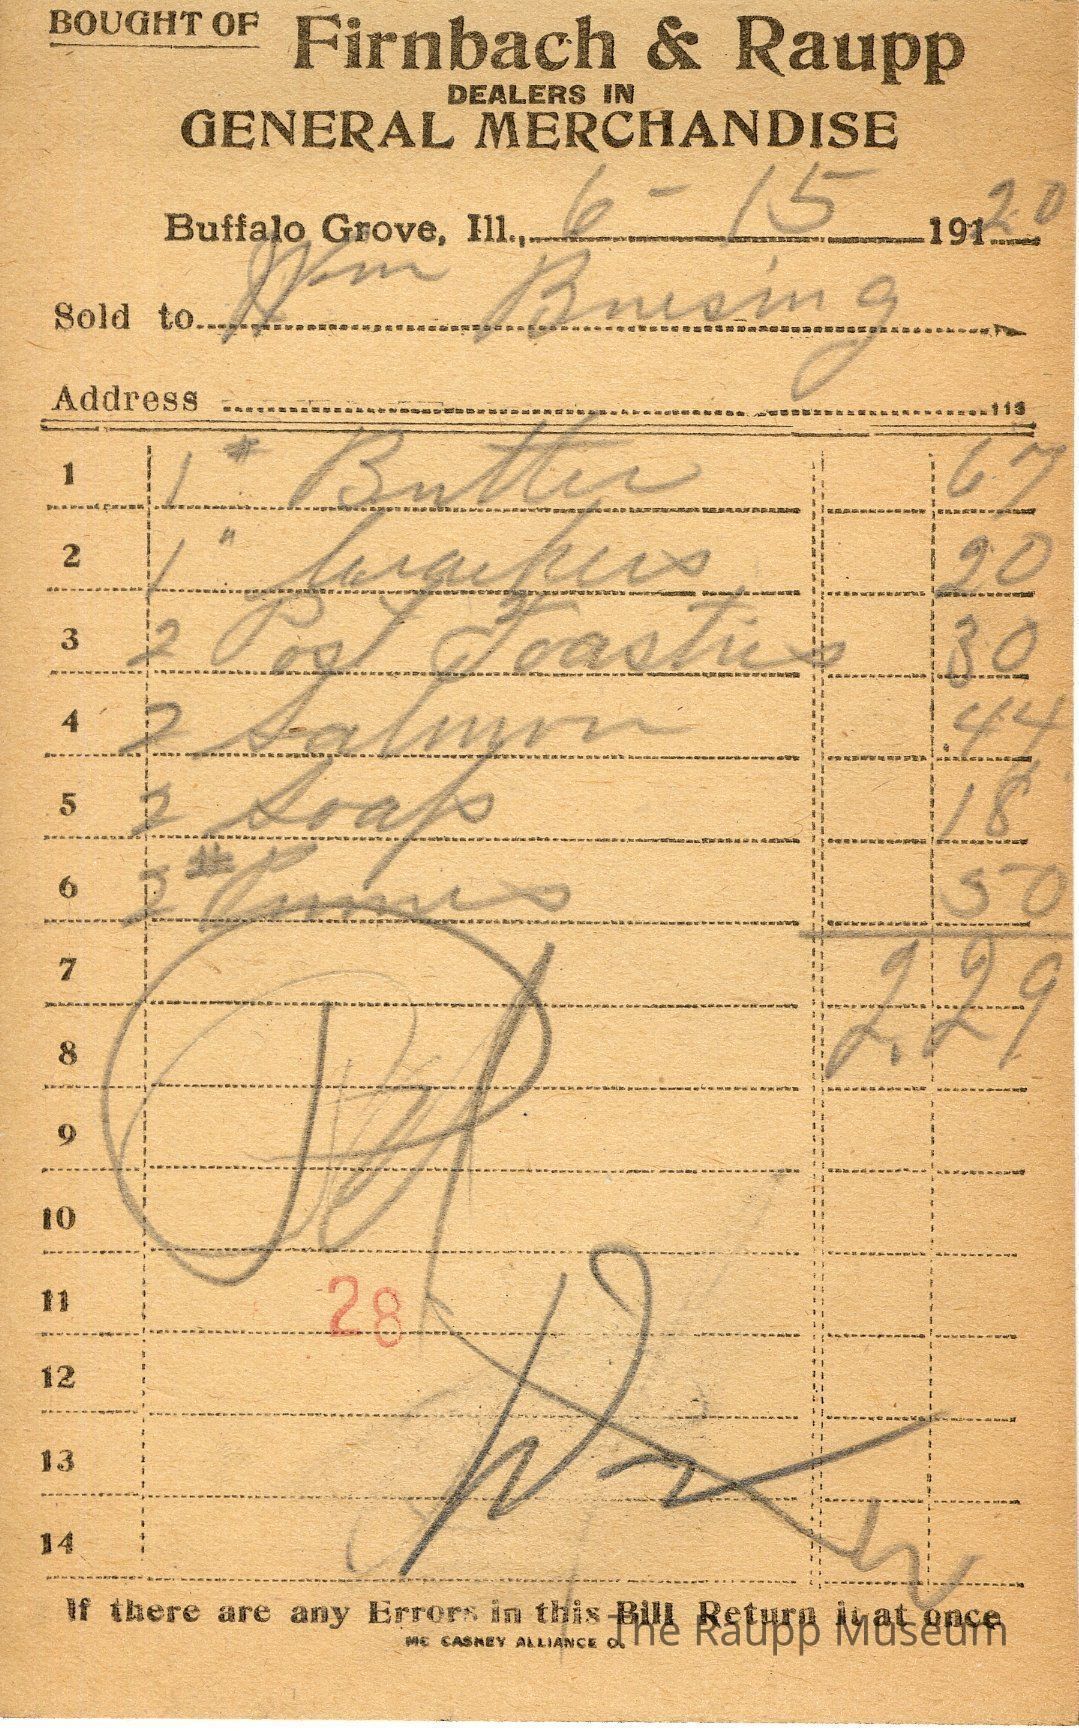 BOUGHT OF Firnbach & Raupp
DEALERS IN
GENERAL MERCHANDISE
Buffalo Grove, Ill., 6 - 15 191 20
Sold to Wm Buesing
Address
113
1 1 # Butter 67
2 1 " Crackers 20
3 2 Post Toasties 30
4 2 Salmon .44
5 2 Soap 18
6 2 # Prunes 50
7 2.29
8
9
10
11 28
12
13
14
If there are any Errors in this Bill Return it at once
MC CASKEY ALLIANCE O.
The Raupp Museum